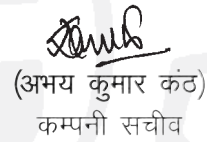 (अभय कुमार कंठ)
कम्पनी सचीव